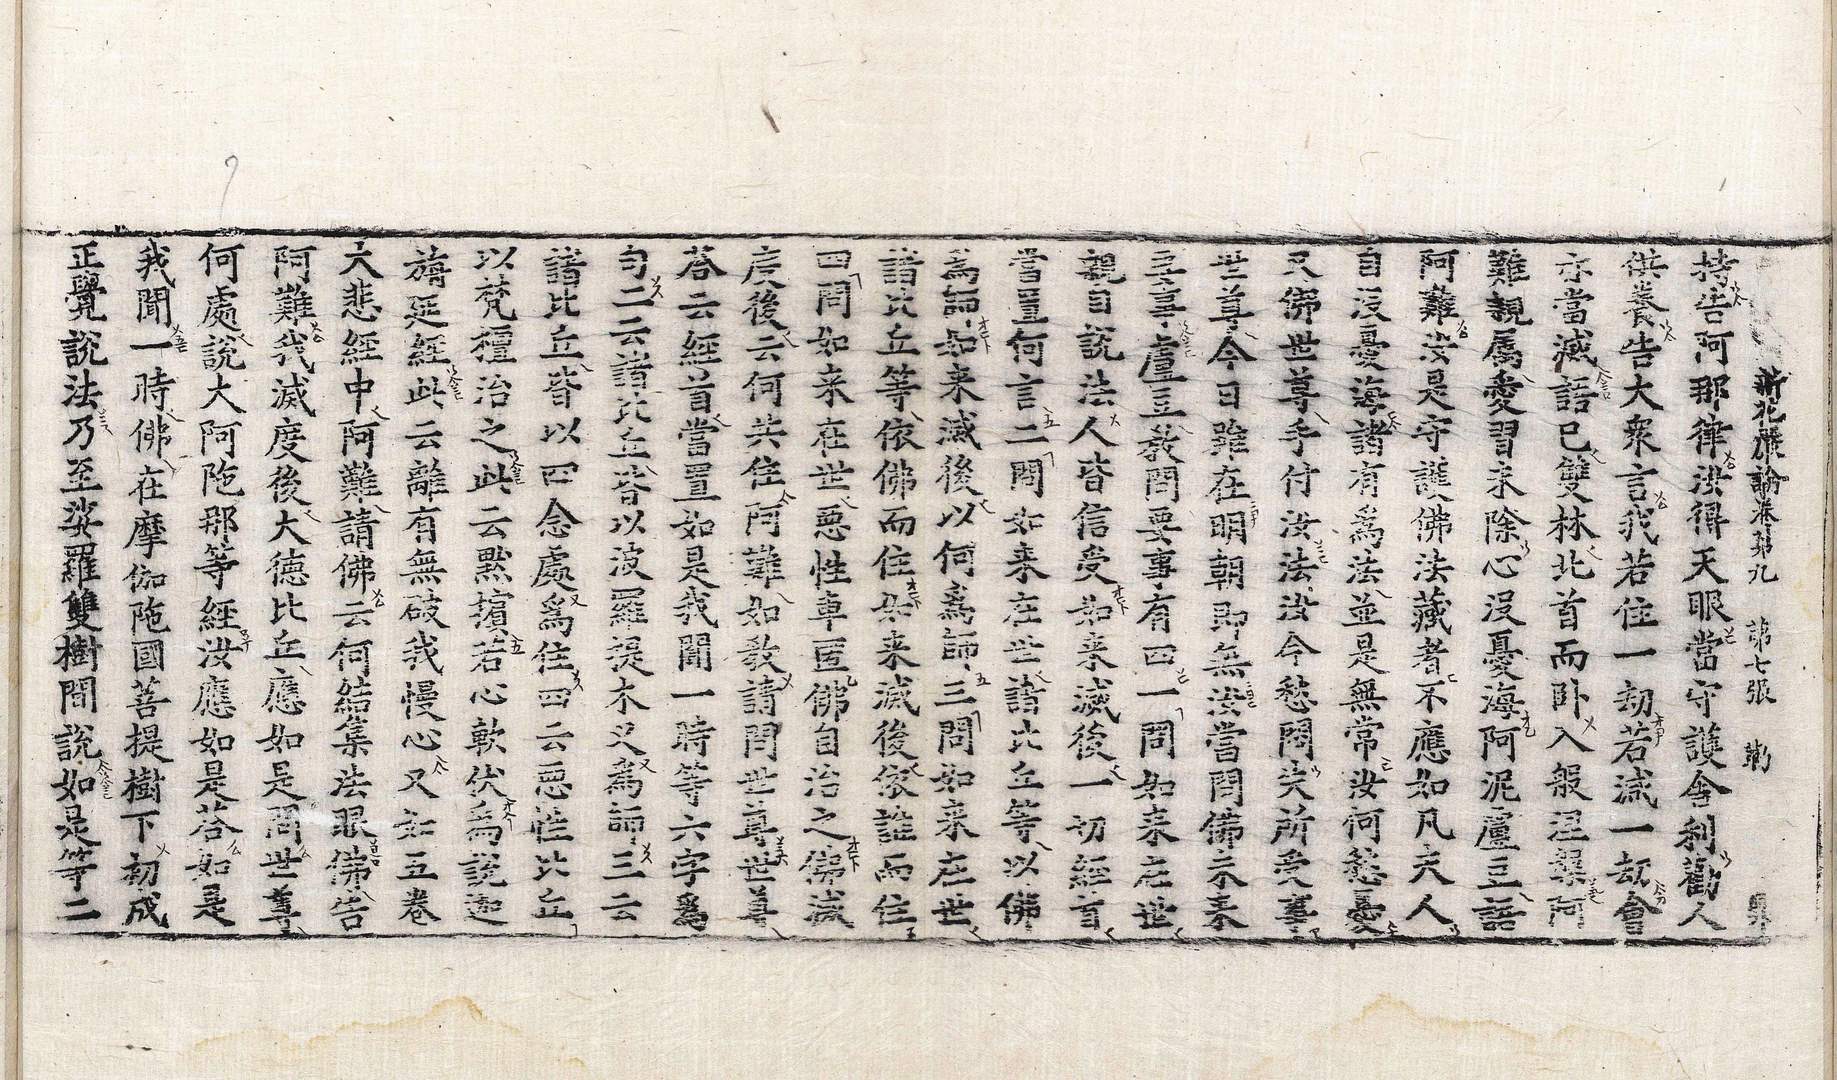 新花嚴論卷第九　第七張
持告阿那律汝得天眼當守護舍利勸人
供養告大衆言我若住一劫若減一劫會
亦當滅語已雙林北首而卧入般涅槃阿
難親屬愛習未除心没憂海阿泥盧豆語
阿難汝是守護佛法藏者不應如凡夫人
自没憂海諸有爲法並是無常汝何愁憂
又佛世尊手付汝法汝今愁悶失所受事
世尊今日雖在明朝即無汝當問佛未来
要事盧豆教問要事有四一問如来在世
親自說法人皆信受如来滅後一切經首
當置何言二問如来在世諸比丘等以佛
爲師如来滅後以何爲師三問如来在世
諸比丘等依佛而住如来滅後依誰而住
四問如来在世惡性車匿佛自治之佛滅
度後云何共住阿難如教請問世尊世尊
荅云經首當置如是我聞一時等六字爲
句二云諸比丘皆以波羅提木叉爲師三云
諸比丘皆以四念處爲住四云惡性比丘
以梵檀治之此云默擯若心軟伏爲說迦
旃延經此云離有無破我慢心又如五卷
大悲經中阿難請佛云何結集法眼佛告
阿難我滅度後大德比丘應如是問世尊
何處說大阿陁那等經汝應如是荅如是
我聞一時佛在摩伽陁國菩提樹下初成
正覺說法乃至娑羅雙樹間說如是等二